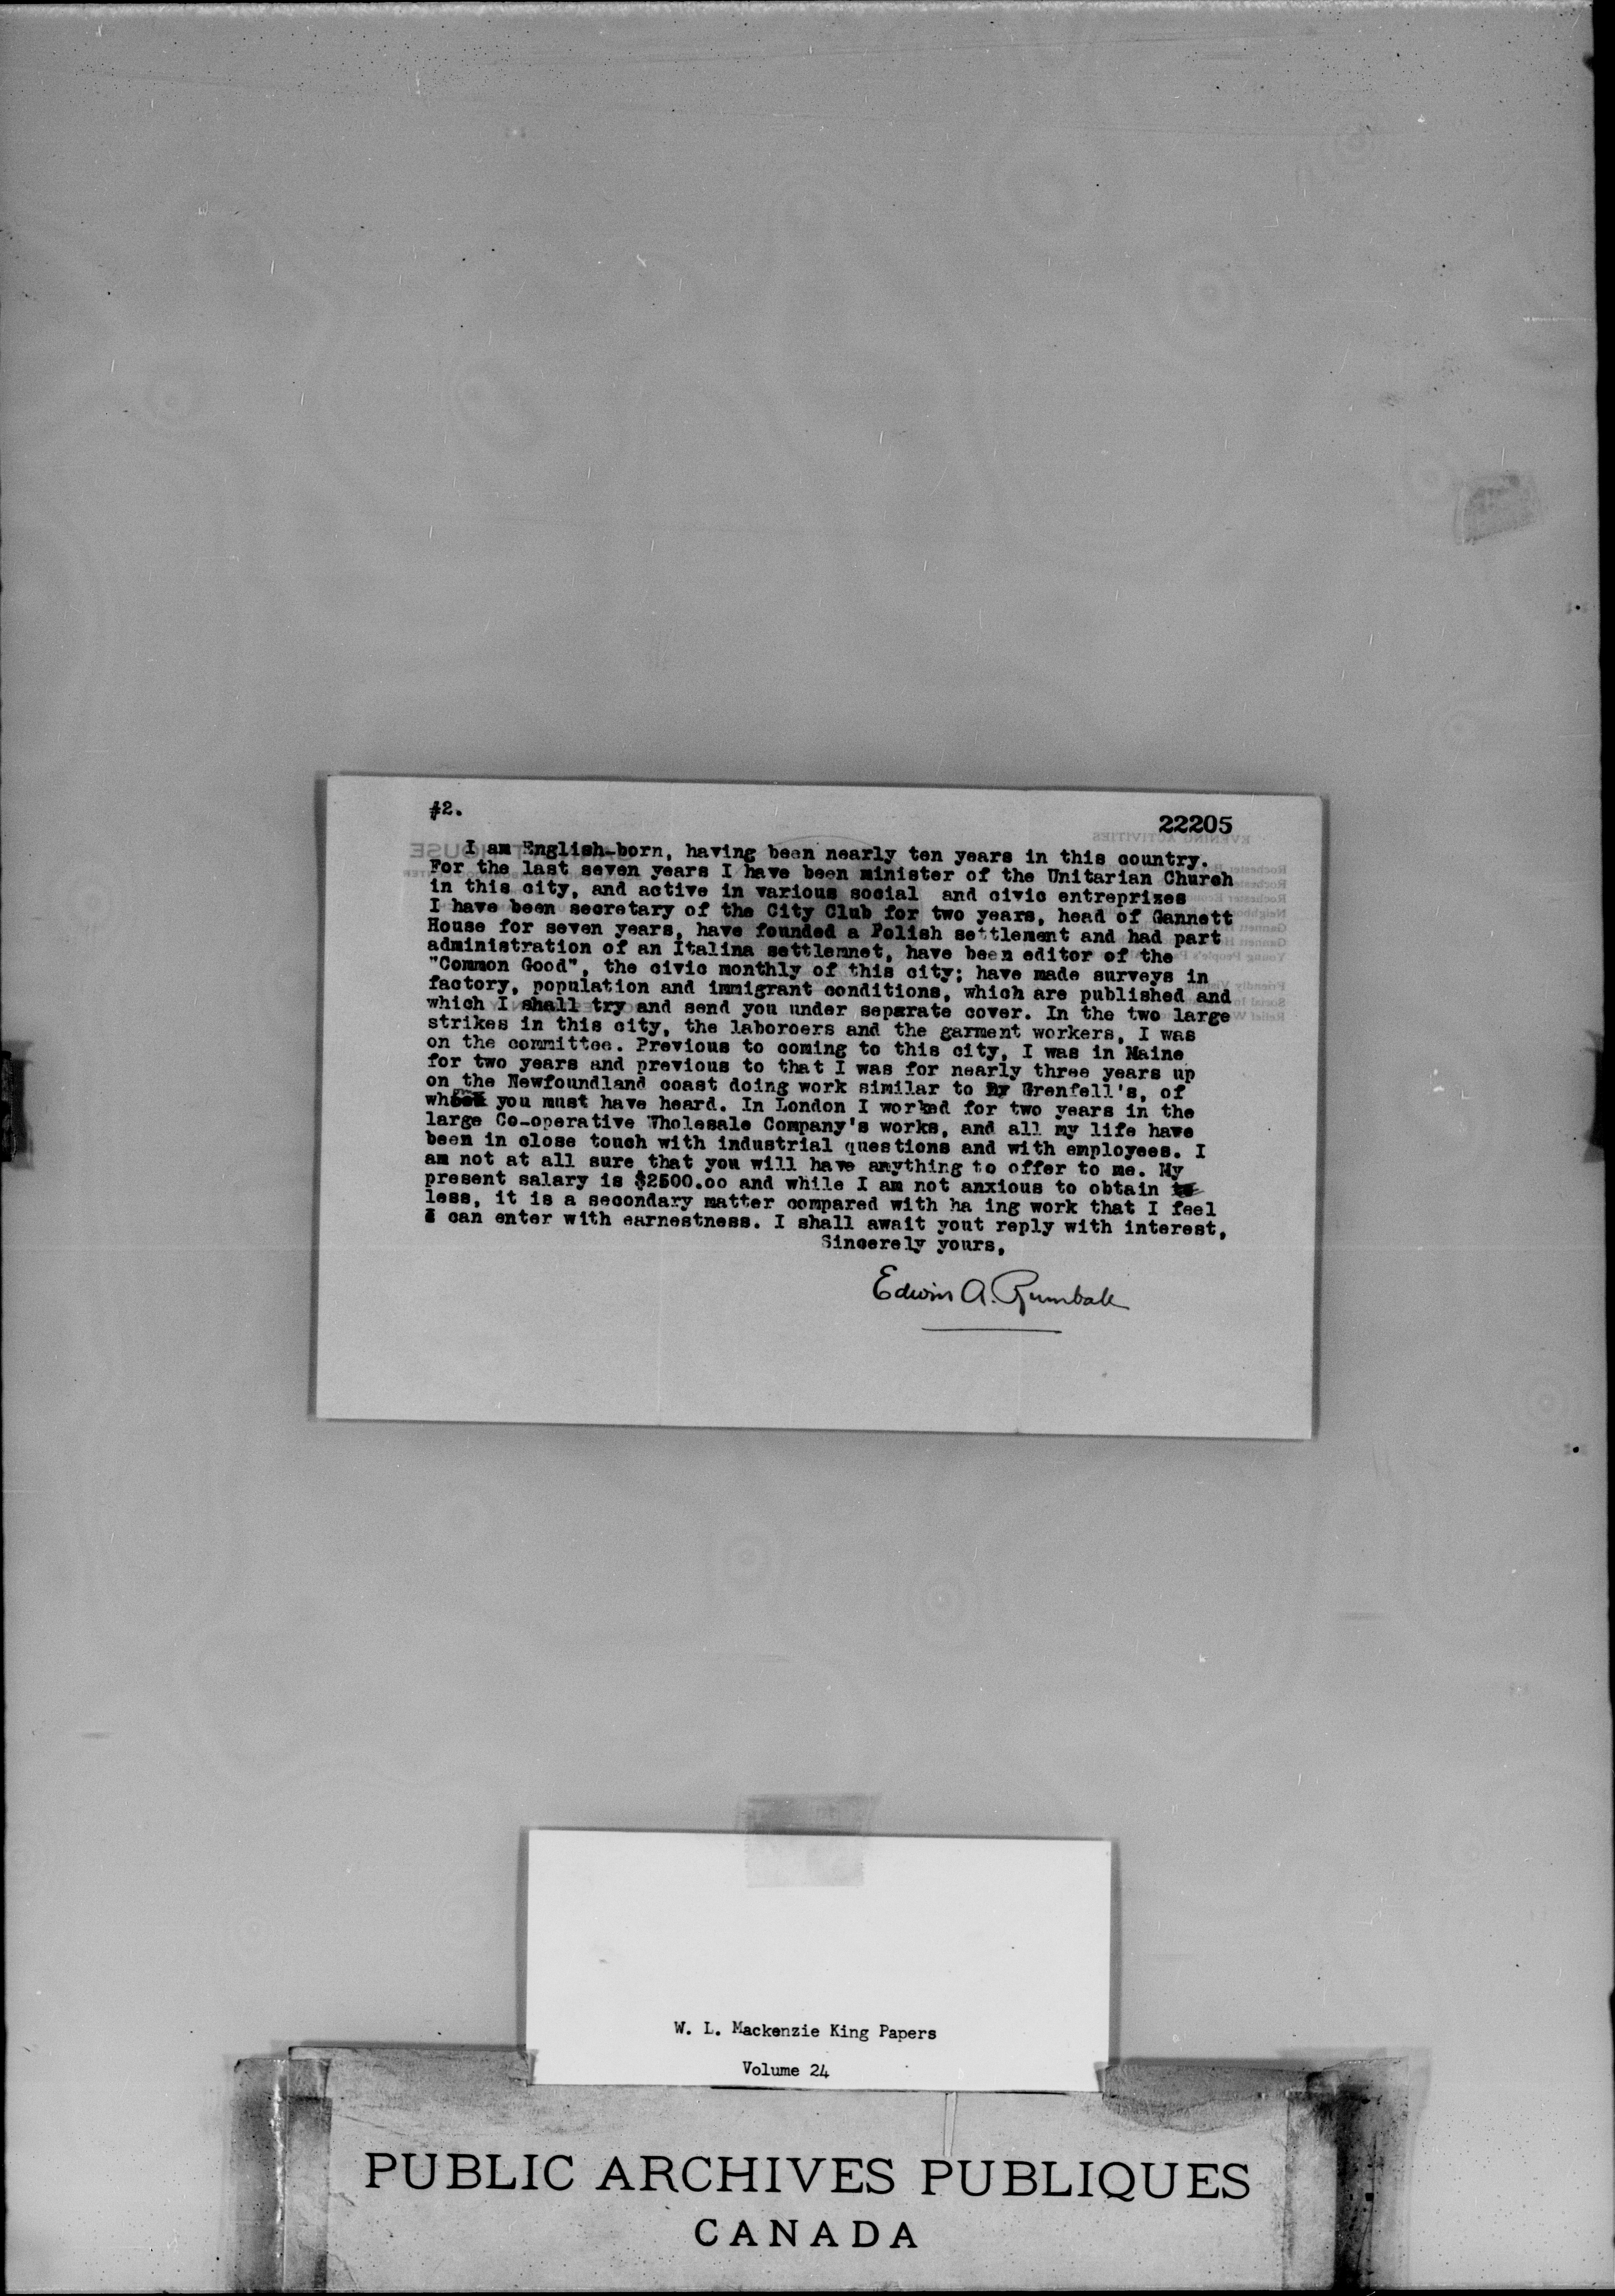 #2.
22205
I am English-born, having been nearly ten years in this country.
For the last seven years I have been minister of the Unitarian Church
in this city, and active in various social and civic entreprizes
I have been secretary of the City Club for two years, head of Gannett
House for seven years, have founded a Polish settlement and had part
administration of an Italina settlemnet, have been editor of the
"Common Good", the civic monthly of this city; have made surveys in
factory, population and immigrant conditions, which are published and
which I shall try and send you under separate cover. In the two large
strikes in this city, the laboroers and the garment workers, I was
on the committee. Previous to coming to this city, I was in Maine
for two years and previous to that I was for nearly three years up
on the Newfoundland coast doing work similar to Dr Grenfell's, of
you must have heard. In London I worked for two years in the
large Co-operative Wholesale Company's works, and all my life have
been in close touch with industrial questions and with employees. I
am not at all sure that you will have anything to offer to me. My
present salary is $2500.00 and while I am not anxious to obtain
less, it is a secondary matter compared with ha ing work that I feel
I can enter with earnestness. I shall await yout reply with interest,
Sincerely yours,
Edwin A. Rumball
W. L. Mackenzie King Papers
Volume 24
PUBLIC ARCHIVES PUBLIQUES
CANADA